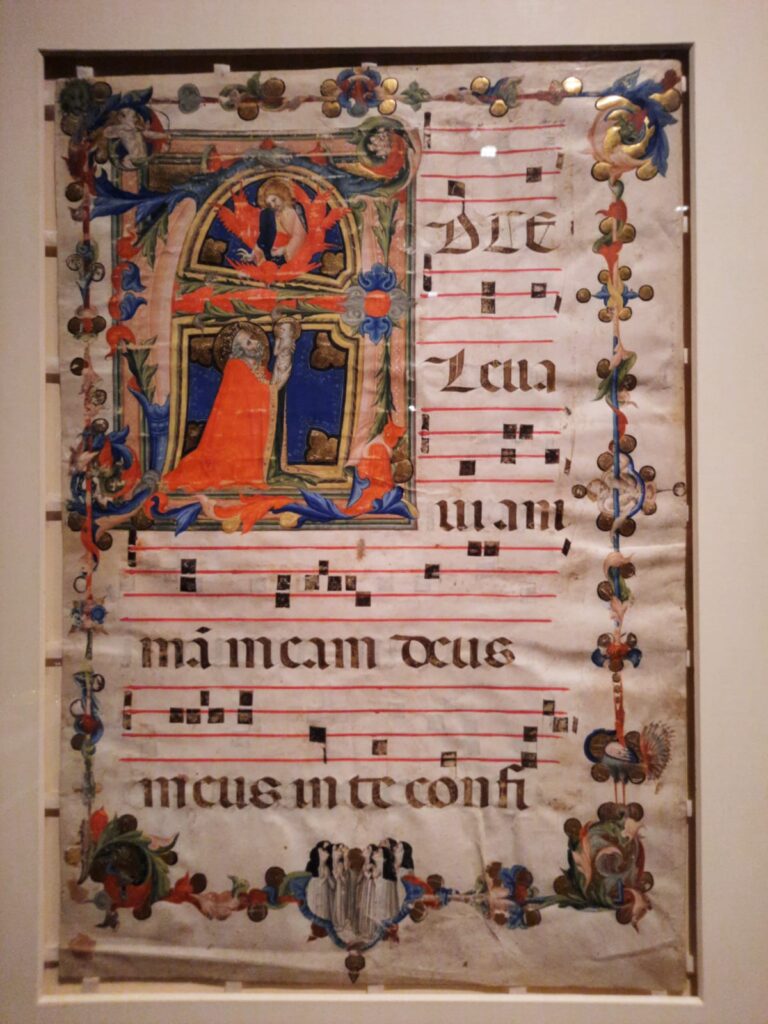 AD TE
Leua
ui ani
mā meam deus
meus in te confi